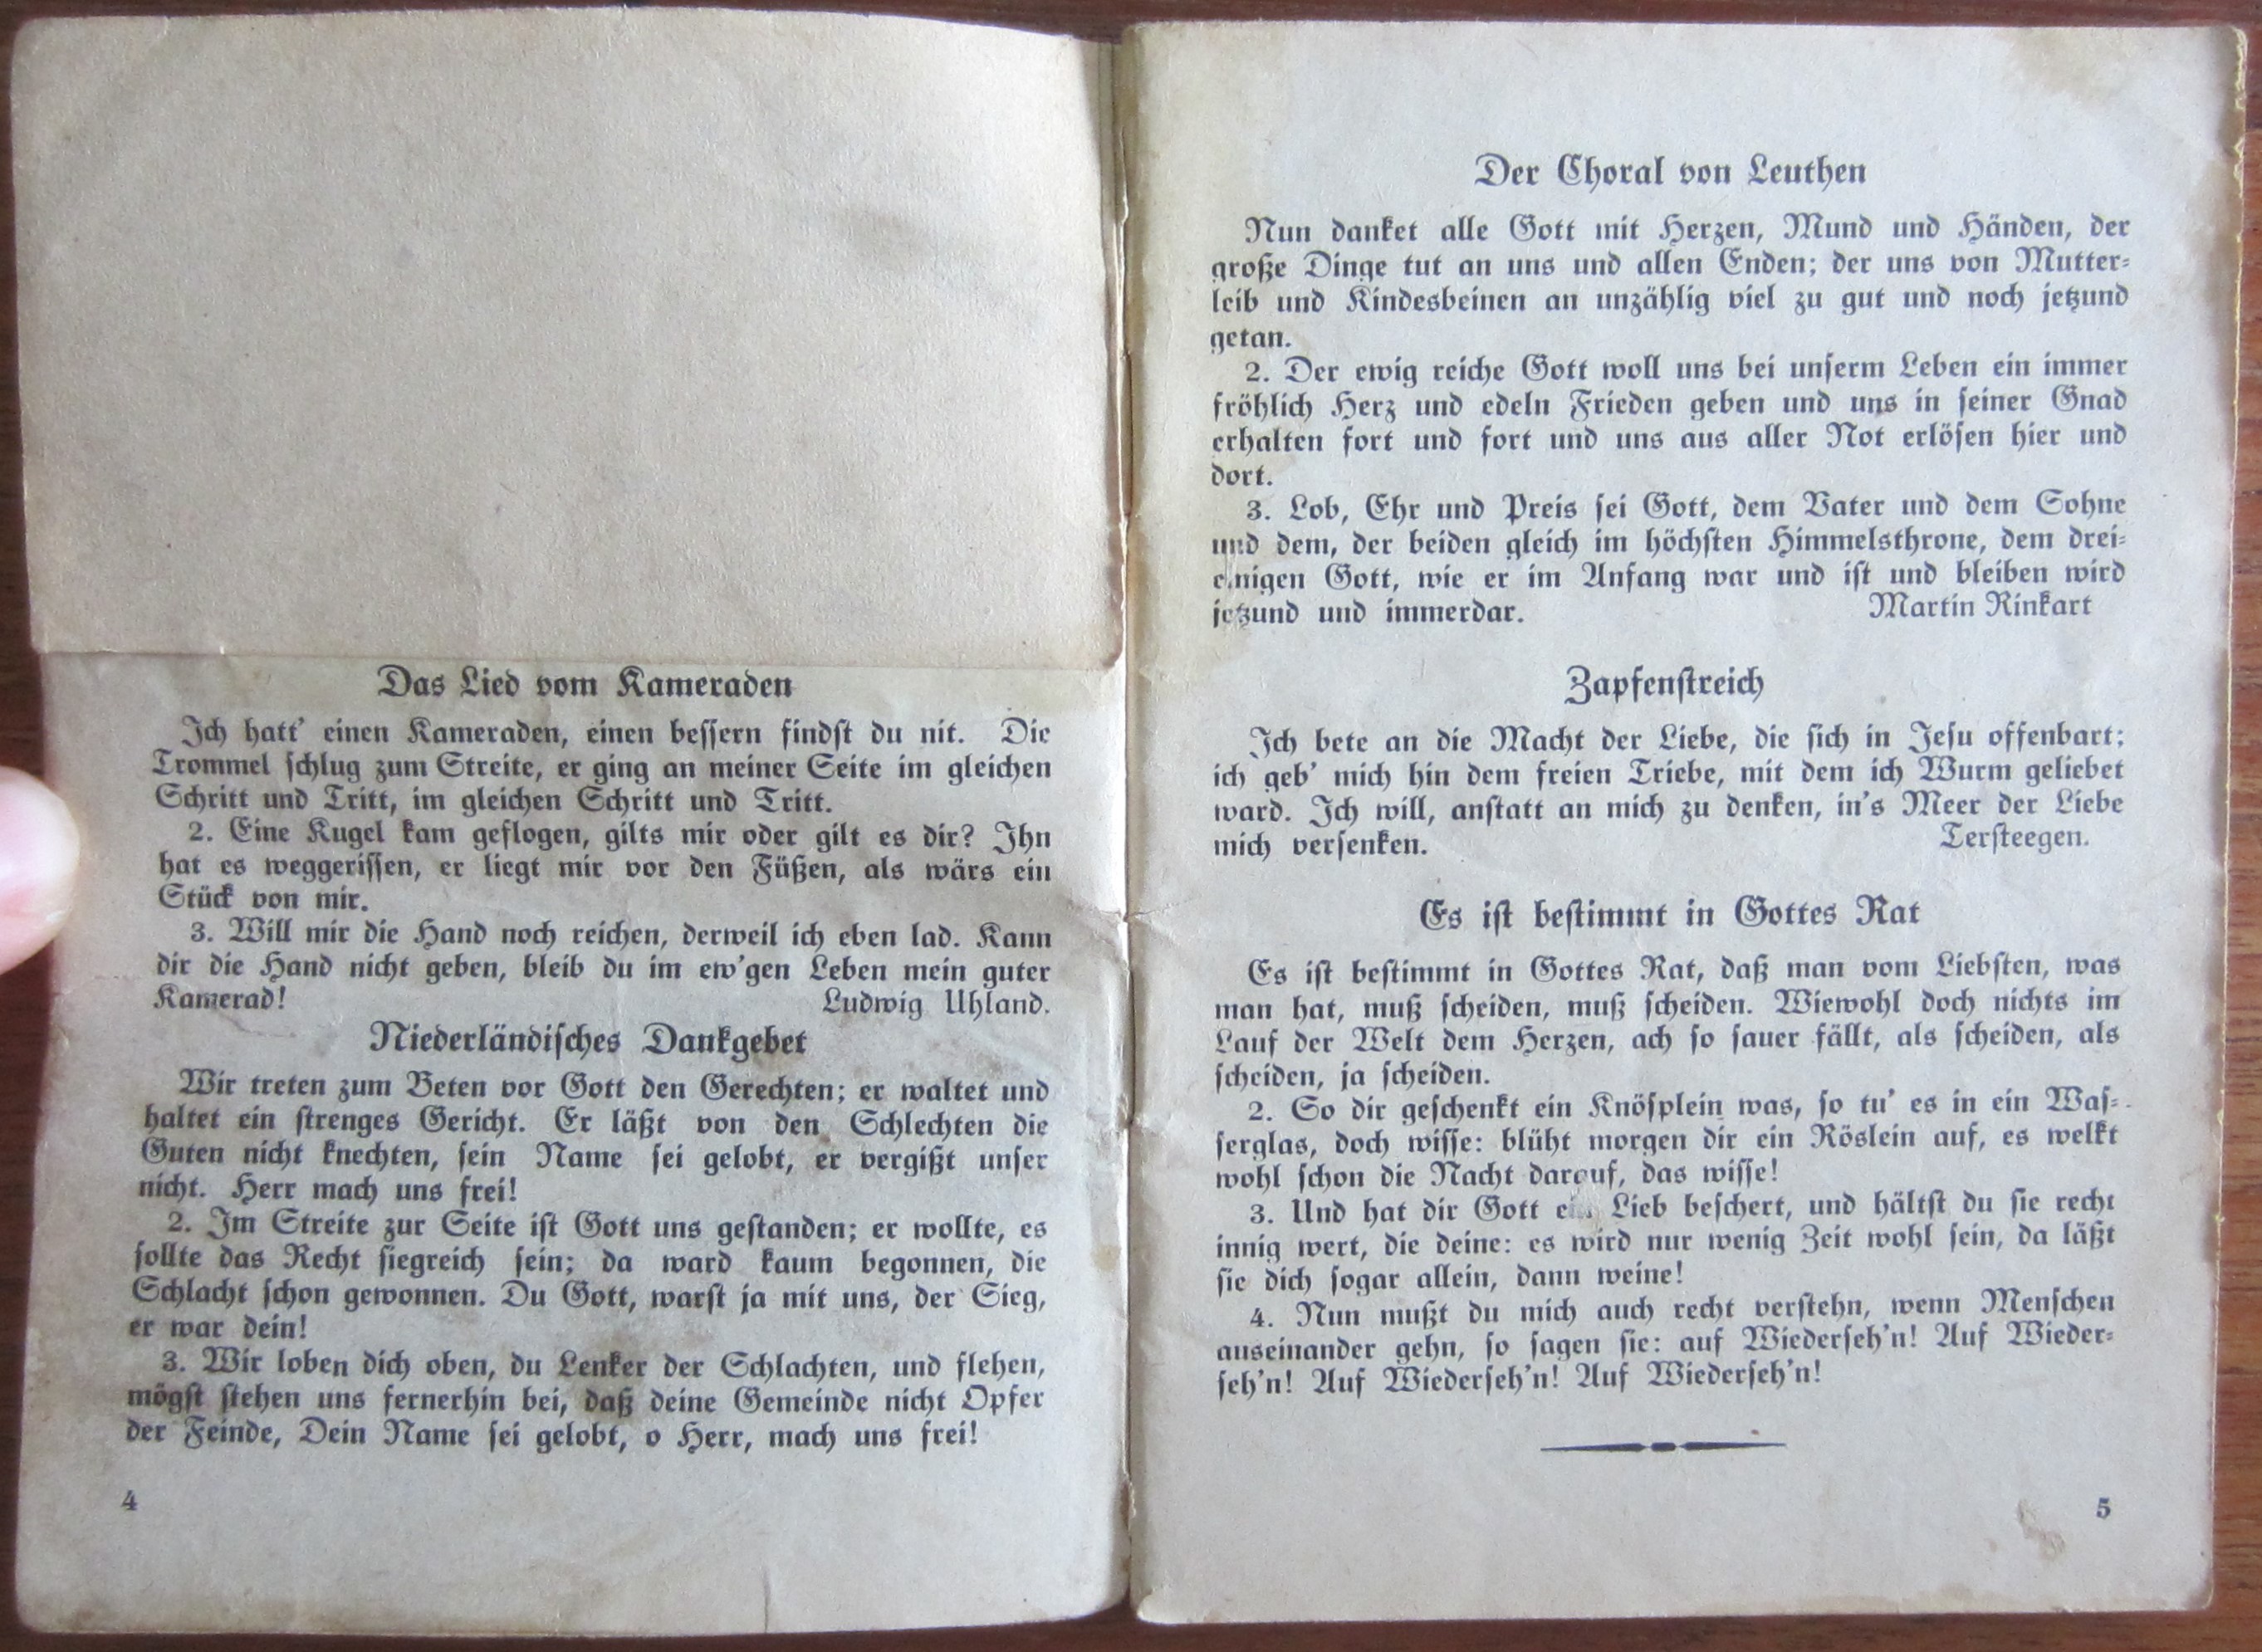 Das Lied vom Kameraden
Ich hatt' einen Kameraden, einen bessern findst du nit. Die
Trommel schlug zum Streite, er ging an meiner Seite im gleichen
Schritt und Tritt, im gleichen Schritt und Tritt.
2. Eine Kugel kam geflogen, gilts mir oder gilt es dir? Ihn
hat es weggerissen, er liegt mir vor den Füßen, als wärs ein
Stück von mir.
3. Will mir die Hand noch reichen, derweil ich eben lad. Kann
dir die Hand nicht geben, bleib du im ew'gen Leben mein guter
Kamerad! Ludwig Uhland.
Niederländisches Dankgebet
Wir treten zum Beten vor Gott den Gerechten; er waltet und
haltet ein strenges Gericht. Er läßt von den Schlechten die
Guten nicht knechten, sein Name sei gelobt, er vergißt unser
nicht. Herr mach uns frei!
2. Im Streite zur Seite ist Gott uns gestanden; er wollte, es
sollte das Recht siegreich sein; da ward kaum begonnen, die
Schlacht schon gewonnen. Du Gott, warst ja mit uns, der Sieg,
er war dein!
3. Wir loben dich oben, du Lenker der Schlachten, und flehen,
mögst stehen uns fernerhin bei, daß deine Gemeinde nicht Opfer
der Feinde, Dein Name sei gelobt, o Herr, mach uns frei!
4
Der Choral von Leuthen
Nun danket alle Gott mit Herzen, Mund und Händen, der
große Dinge tut an uns und allen Enden; der uns von Mutter-
leib und Kindesbeinen an unzählig viel zu gut und noch jetzund
getan.
2. Der ewig reiche Gott woll uns bei unserm Leben ein immer
fröhlich Herz und edeln Frieden geben und uns in seiner Gnad
erhalten fort und fort und uns aus aller Not erlösen hier und
dort.
3. Lob, Ehr und Preis sei Gott, dem Vater und dem Sohne
und dem, der beiden gleich im höchsten Himmelsthrone, dem drei-
einigen Gott, wie er im Anfang war und ist und bleiben wird
jetzund und immerdar. Martin Rinkart
Zapfenstreich
Ich bete an die Macht der Liebe, die sich in Jesu offenbart;
ich geb' mich hin dem freien Triebe, mit dem ich Wurm geliebet
ward. Ich will, anstatt an mich zu denken, in's Meer der Liebe
mich versenken. Tersteegen.
Es ist bestimmt in Gottes Rat
Es ist bestimmt in Gottes Rat, daß man vom Liebsten, was
man hat, muß scheiden, muß scheiden. Wiewohl doch nichts im
Lauf der Welt dem Herzen, ach so sauer fällt, als scheiden, als
scheiden, ja scheiden.
2. So dir geschenkt ein Knösplein was, so tu' es in ein Was-
serglas, doch wisse: blüht morgen dir ein Röslein auf, es welkt
wohl schon die Nacht darauf, das wisse!
3. Und hat dir Gott ein Lieb beschert, und hältst du sie recht
innig wert, die deine: es wird nur wenig Zeit wohl sein, da läßt
sie dich sogar allein, dann weine!
4. Nun mußt du mich auch recht verstehn, wenn Menschen
auseinander gehn, so sagen sie: auf Wiederseh'n! Auf Wieder-
seh'n! Auf Wiederseh'n! Auf Wiederseh'n!
5